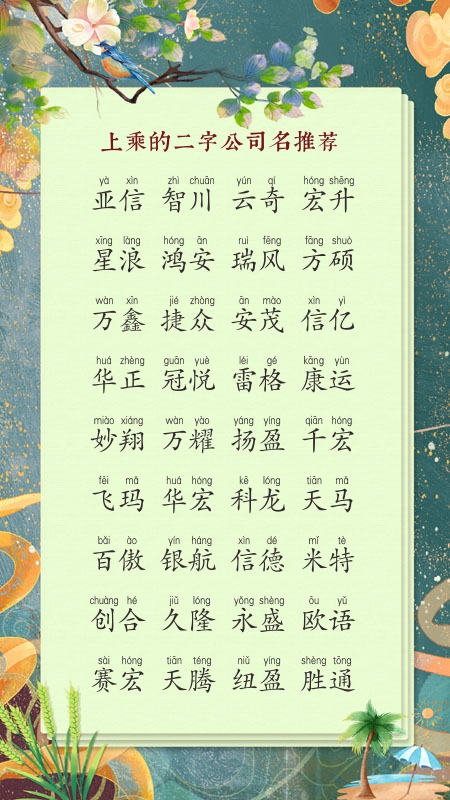 上乘的二字公司名推荐
yà xìn zhì chuān yún qí hóng shēng
亚信 智川 云奇 宏升
xīng làng hóng ān ruì fēng fāng shuò
星浪 鸿安 瑞风 方硕
wàn xīn jié zhòng ān mào xìn yì
万鑫 捷众 安茂 信亿
huá zhèng guān yuè léi gé kāng yùn
华正 冠悦 雷格 康运
miào xiáng wàn yào yáng yíng qiān hóng
妙翔 万耀 扬盈 千宏
fēi mǎ huá hóng kē lóng tiān mǎ
飞玛 华宏 科龙 天马
bǎi ào yín háng xìn dé mǐ tè
百傲 银航 信德 米特
chuàng hé jiǔ lóng yǒng shèng ōu yǔ
创合 久隆 永盛 欧语
sài hóng tiān téng niǔ yíng shèng tōng
赛宏 天腾 纽盈 胜通